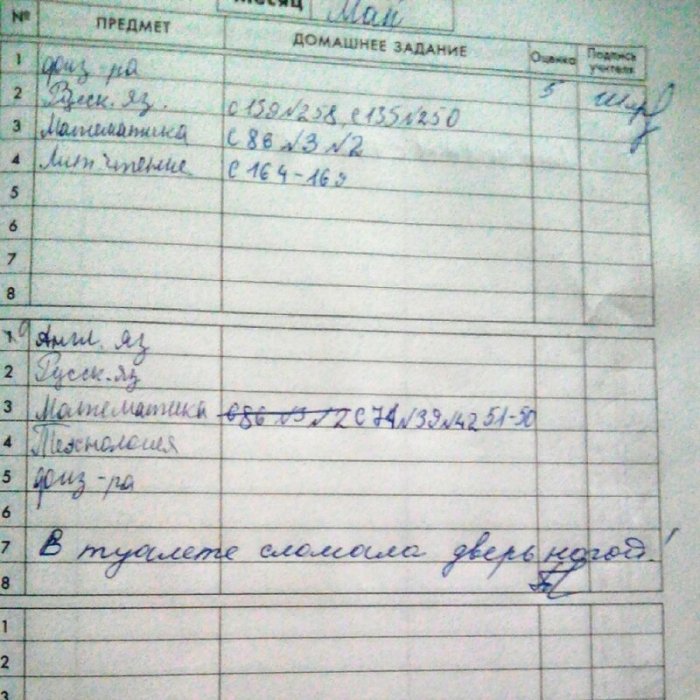 № ПРЕДМЕТ ДОМАШНЕЕ ЗАДАНИЕ Оценка Подпись учителя
месяц Май
1 физ-ра 5
2 Русск. яз. с 159 №258, с 135 №250
3 Математика с 86 №3 №2
4 Лит. чтение с 164-169
5
6
7
8
1 Англ. яз
2 Русск. яз
3 Математика с86 №3 №2 с 74 №39 №42 51-50
4 Технология
5 физ-ра
6
7 В туалете сломала дверь ногой!
8
1
2
3